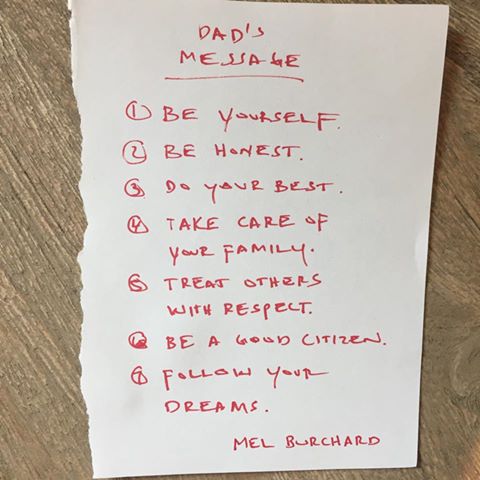 DAD'S
MESSAGE
① BE YOURSELF.
② BE HONEST.
③ DO YOUR BEST.
④ TAKE CARE OF
YOUR FAMILY.
⑤ TREAT OTHERS
WITH RESPECT.
⑥ BE A GOOD CITIZEN.
⑦ FOLLOW YOUR
DREAMS.
MEL BURCHARD